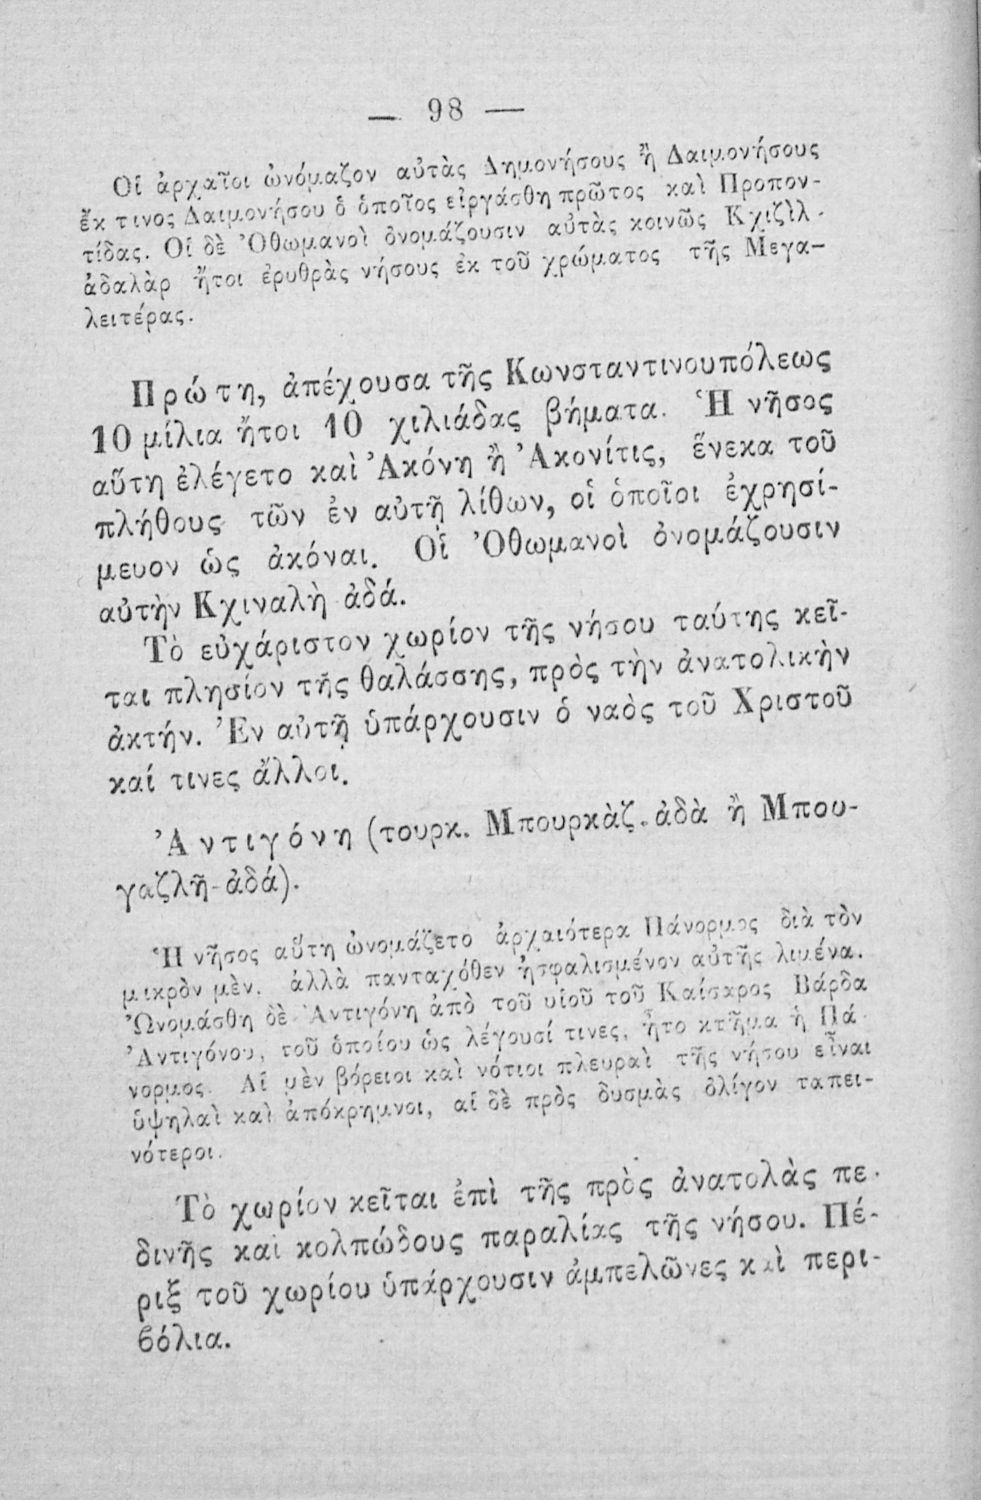 — 98 —
Οἱ ἀρχαῖοι ὠνόμαζον αὐτὰς Δημονήσους ἢ Δαιμονήσους
ἔκ τινος Δαιμονήσου ὁ ὁποῖος εἰργάσθη πρῶτος καὶ Προπον-
τίδας. Οἱ δὲ Ὀθωμανοὶ ὀνομάζουσιν αὐτὰς κοινῶς Κχιζὶλ-
ἀδαλὰρ ἤτοι ἐρυθρὰς νήσους ἐκ τοῦ χρώματος τῆς Μεγα-
λειτέρας.
Πρώτη, ἀπέχουσα τῆς Κωνσταντινουπόλεως
10 μίλια ἤτοι 10 χιλιάδας βήματα. Ἡ νῆσος
αὕτη ἐλέγετο καὶ Ἀκόνη ἢ Ἀκονίτις, ἕνεκα τοῦ
πλήθους τῶν ἐν αὐτῇ λίθων, οἱ ὁποῖοι ἐχρησί-
μευον ὡς ἀκόναι. Οἱ Ὀθωμανοὶ ὀνομάζουσιν
αὐτὴν Κχιναλὴ ἀδά.
Τὸ εὐχάριστον χωρίον τῆς νήσου ταύτης κεῖ-
ται πλησίον τῆς θαλάσσης, πρὸς τὴν ἀνατολικὴν
ἀκτήν. Ἐν αὐτῇ ὑπάρχουσιν ὁ ναὸς τοῦ Χριστοῦ
καί τινες ἄλλοι.
Ἀντιγόνη (τουρκ. Μπουρκὰζ-ἀδὰ ἢ Μπου-
γαζλῆ-ἀδά).
Ἡ νῆσος αὕτη ὠνομάζετο ἀρχαιότερα Πάνορμος διὰ τὸν
μικρὸν μὲν, ἀλλὰ πανταχόθεν ἠσφαλισμένον αὐτῆς λιμένα.
Ὠνομάσθη δὲ Ἀντιγόνη ἀπὸ τοῦ υἱοῦ τοῦ Καίσαρος Βάρδα
Ἀντιγόνου, τοῦ ὁποίου ὡς λέγουσί τινες, ἦτο κτῆμα ἡ Πά-
νορμος. Αἱ μὲν βόρειοι καὶ νότιοι πλευραὶ τῆς νήσου εἶναι
ὑψηλαὶ καὶ ἀπόκρημνοι, αἱ δὲ πρὸς δυσμὰς ὀλίγον ταπει-
νότεροι.
Τὸ χωρίον κεῖται ἐπὶ τῆς πρὸς ἀνατολὰς πε-
δινῆς καὶ κολπώδους παραλίας τῆς νήσου. Πέ-
ριξ τοῦ χωρίου ὑπάρχουσιν ἀμπελῶνες καὶ περι-
βόλια.